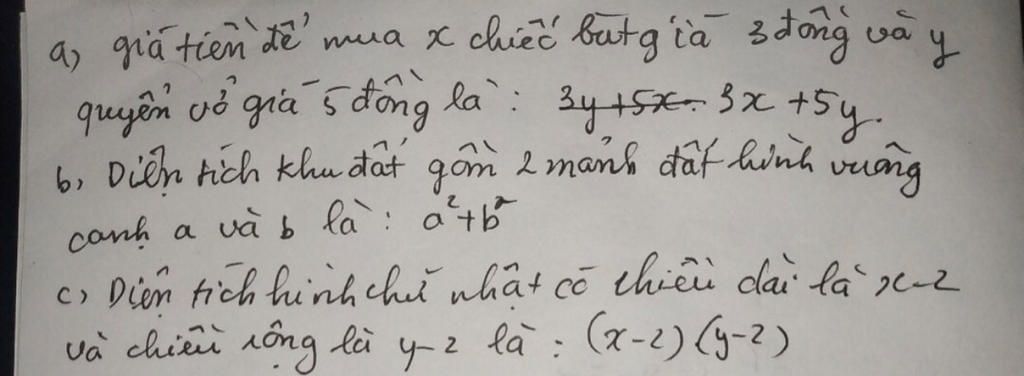 a, giá tiền để mua x chiếc bút giá 3 đồng và y
quyển vở giá 5 đồng là: 3y+5x. 3x +5y.
b, Diện tích khu đất gồm 2 mảnh đất hình vuông
cạnh a và b là: a²+b²
c, Diện tích hình chữ nhật có chiều dài là x-2
và chiều rộng là y-2 là: (x-2)(y-2)